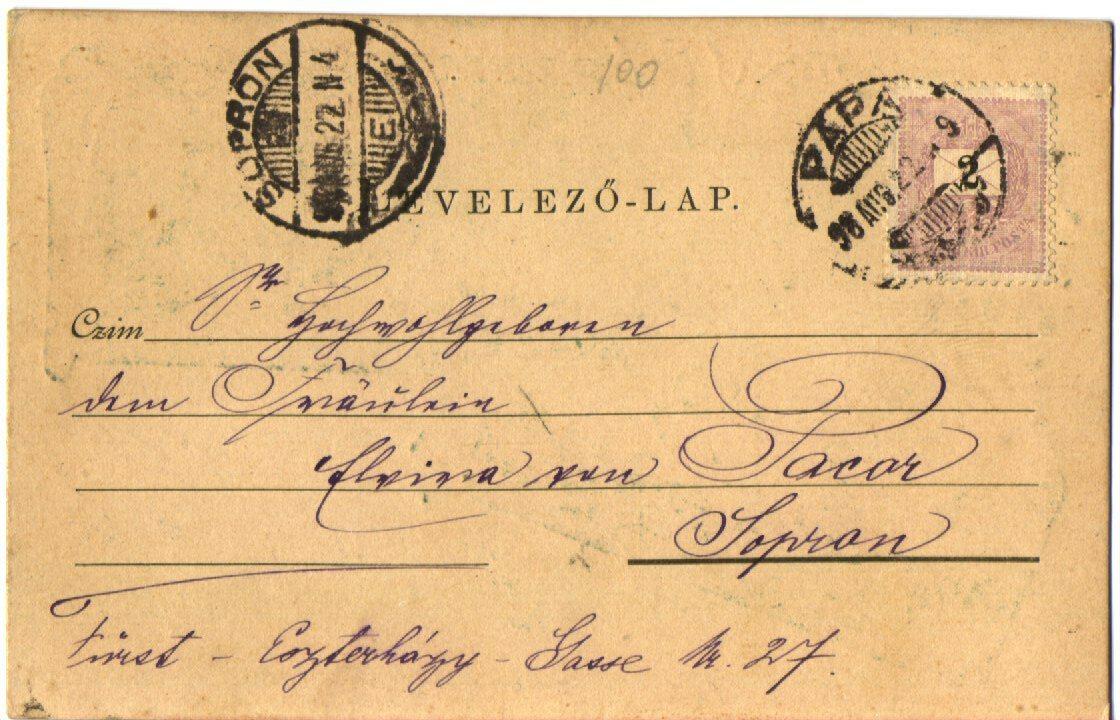 100
SOPRON
98 AUG. 22. N 4
PÁPA
98 AUG. 22. 9
2
LEVELEZŐ-LAP.
Czim Sr Hochwohlgeboren
dem Fräulein
Elvira von Pacor
Sopron
Fürst - Eszterházy - Gasse Nr. 27.